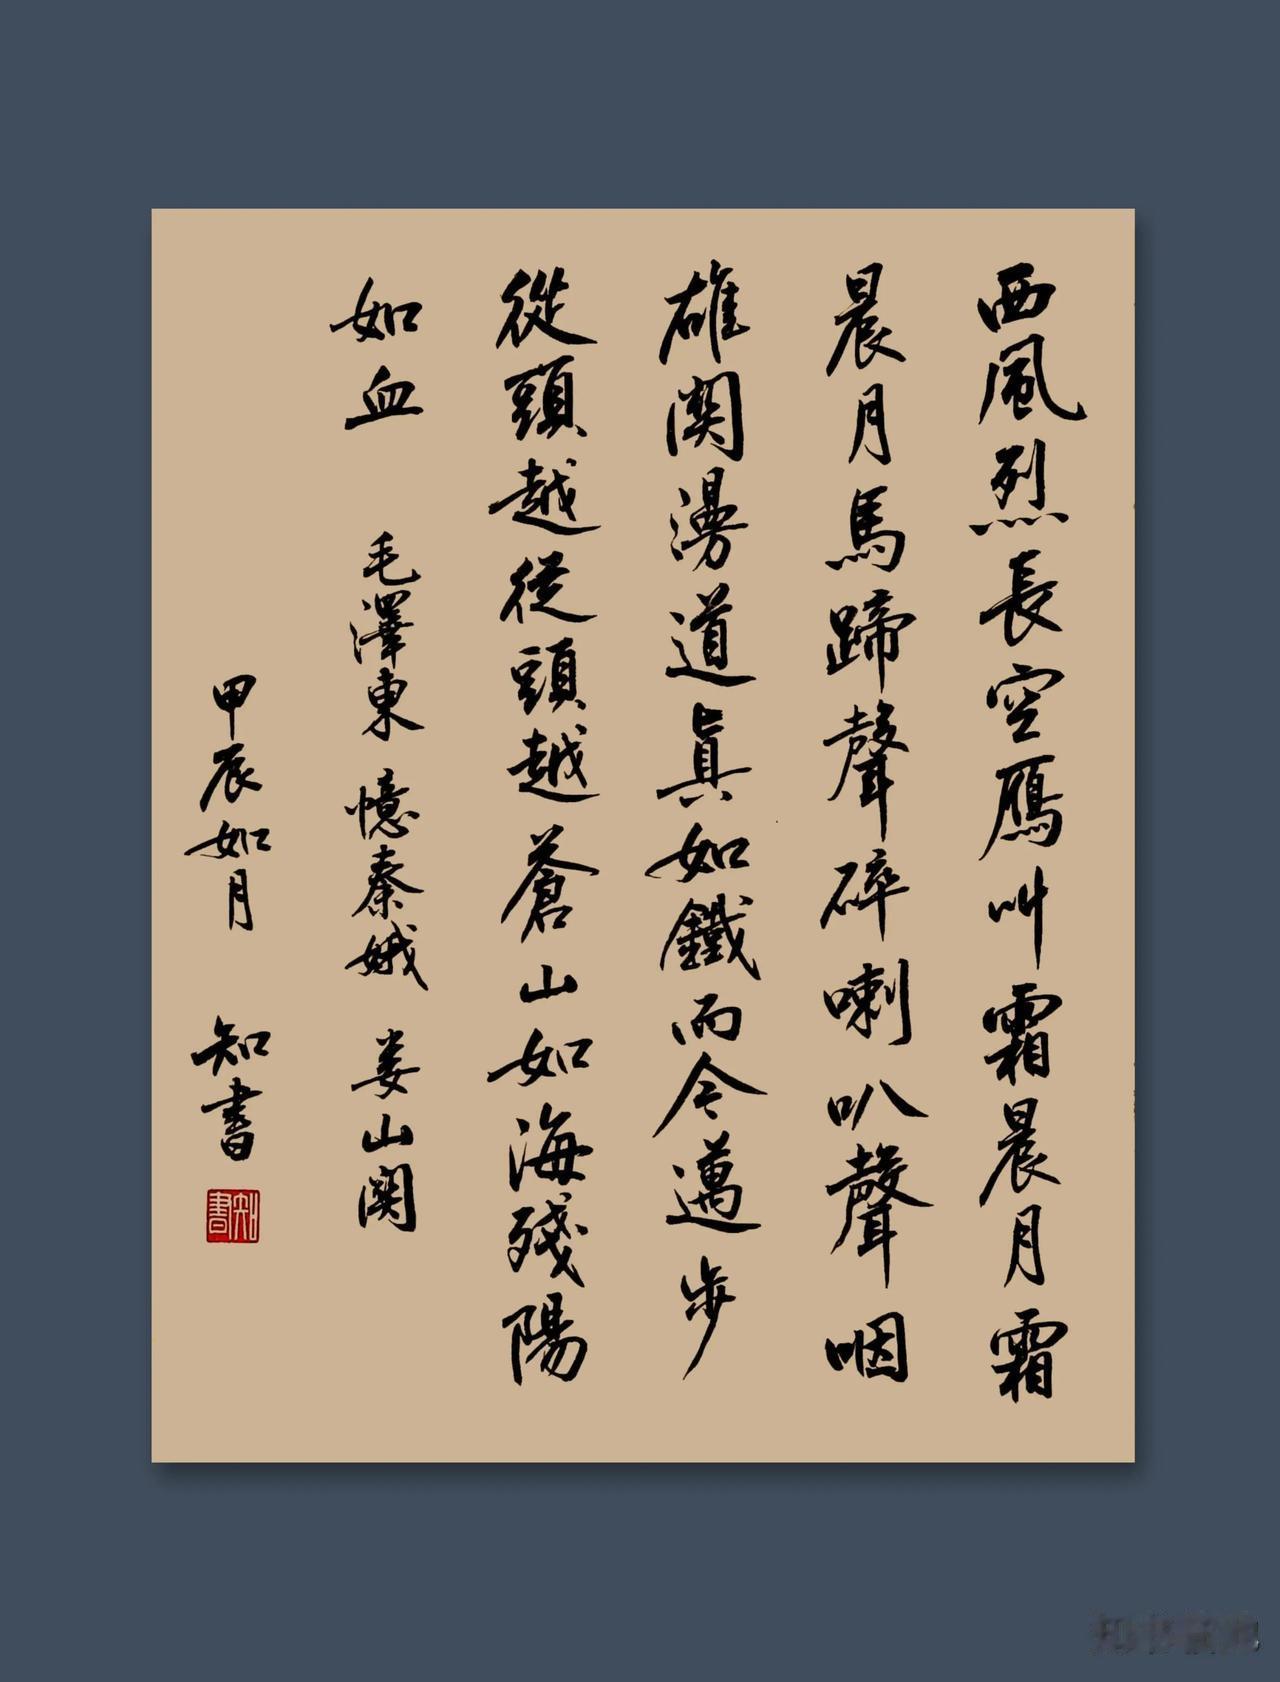 西風烈長空雁叫霜晨月霜
晨月馬蹄聲碎喇叭聲咽
雄関漫道真如鐵而今邁步
從頭越從頭越蒼山如海殘陽
如血 毛澤東 憶秦娥 婁山関
甲辰如月 知書
知書